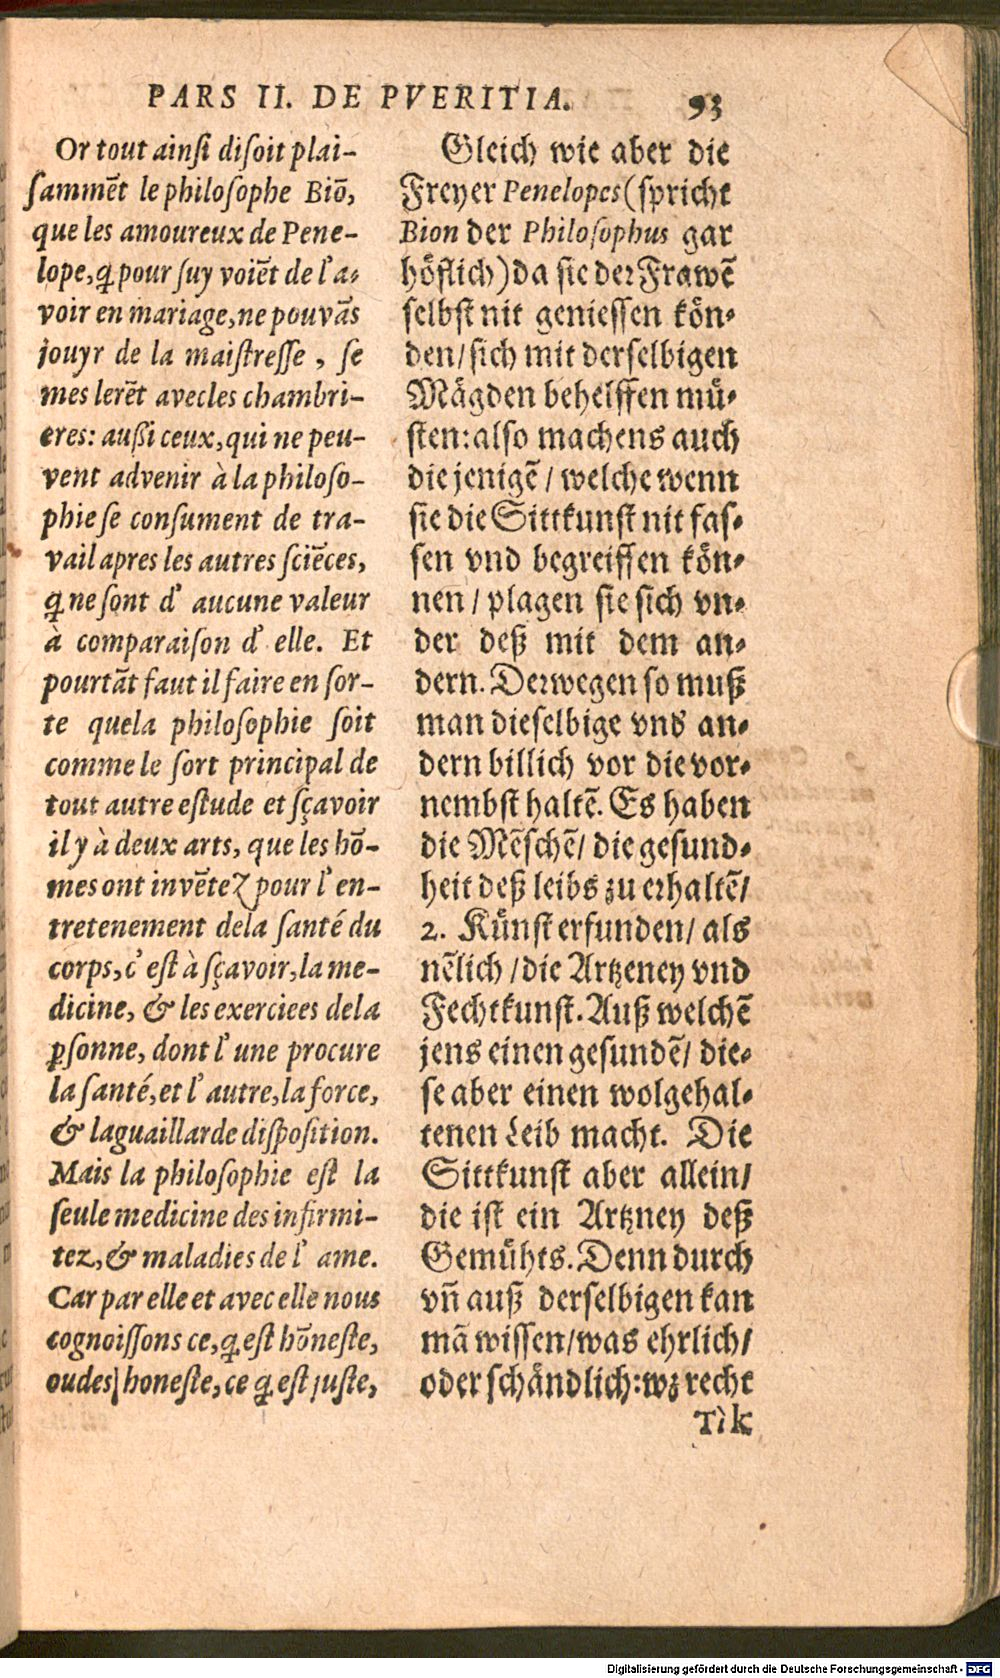 PARS II. DE PVERITIA. 93
Or tout ainſi diſoit plai-
ſammēt le philoſophe Biō,
que les amoureux de Pene-
lope, q̃ pour ſuy voiēt de l'a-
voir en mariage, ne pouvās
jouyr de la maiſtreſſe, ſe
mes lerēt avecles chambri-
eres: außi ceux, qui ne peu-
vent advenir à la philoſo-
phie ſe conſument de tra-
vail apres les autres ſciēces,
q̃ ne ſont d' aucune valeur
à comparaiſon d' elle. Et
pourtāt faut il faire en ſor-
te quela philoſophie ſoit
comme le ſort principal de
tout autre eſtude et sçavoir
il y à deux arts, que les hō-
mes ont invēteZ pour l' en-
tretenement dela ſanté du
corps, c' eſt à sçavoir, la me-
dicine, & les exerciees dela
ꝑſonne, dont l' une procure
la ſanté, et l' autre, la force,
& laguaillarde diſpoſition.
Mais la philoſophie eſt la
ſeule medicine des infirmi-
tez, & maladies de l' ame.
Car par elle et avec elle nous
cognoiſſons ce, q̃ eſt hōneſte,
oudes| honeſte, ce q̃ eſt juſte,
Gleich wie aber die
Freyer Penelopes (ſpricht
Bion der Philoſophus gar
höflich) da ſie der Frawē
ſelbſt nit genieſſen kön-
den/ ſich mit derſelbigen
Mägden behelffen mü-
ſten: alſo machens auch
die jenigē / welche wenn
ſie die Sittkunſt nit faſ-
ſen vnd begreiffen kön-
nen / plagen ſie ſich vn-
der deß mit dem an-
dern. Derwegen ſo muß
man dieſelbige vns an-
dern billich vor die vor-
nembſt haltē. Es haben
die Mēſchē/ die geſund-
heit deß leibs zu erhaltē/
2. Künſt erfunden/ als
nēlich / die Artzeney vnd
Fechtkunſt. Auß welchē
jens einen geſundē/ die-
ſe aber einen wolgehal-
tenen Leib macht. Die
Sittkunſt aber allein/
die iſt ein Artzney deß
Gemühts. Denn durch
vñ auß derſelbigen kan
mā wiſſen/ was ehrlich/
oder ſchändlich: wz recht
Tik
Digitalisierung gefördert durch die Deutsche Forschungsgemeinschaft - DFG